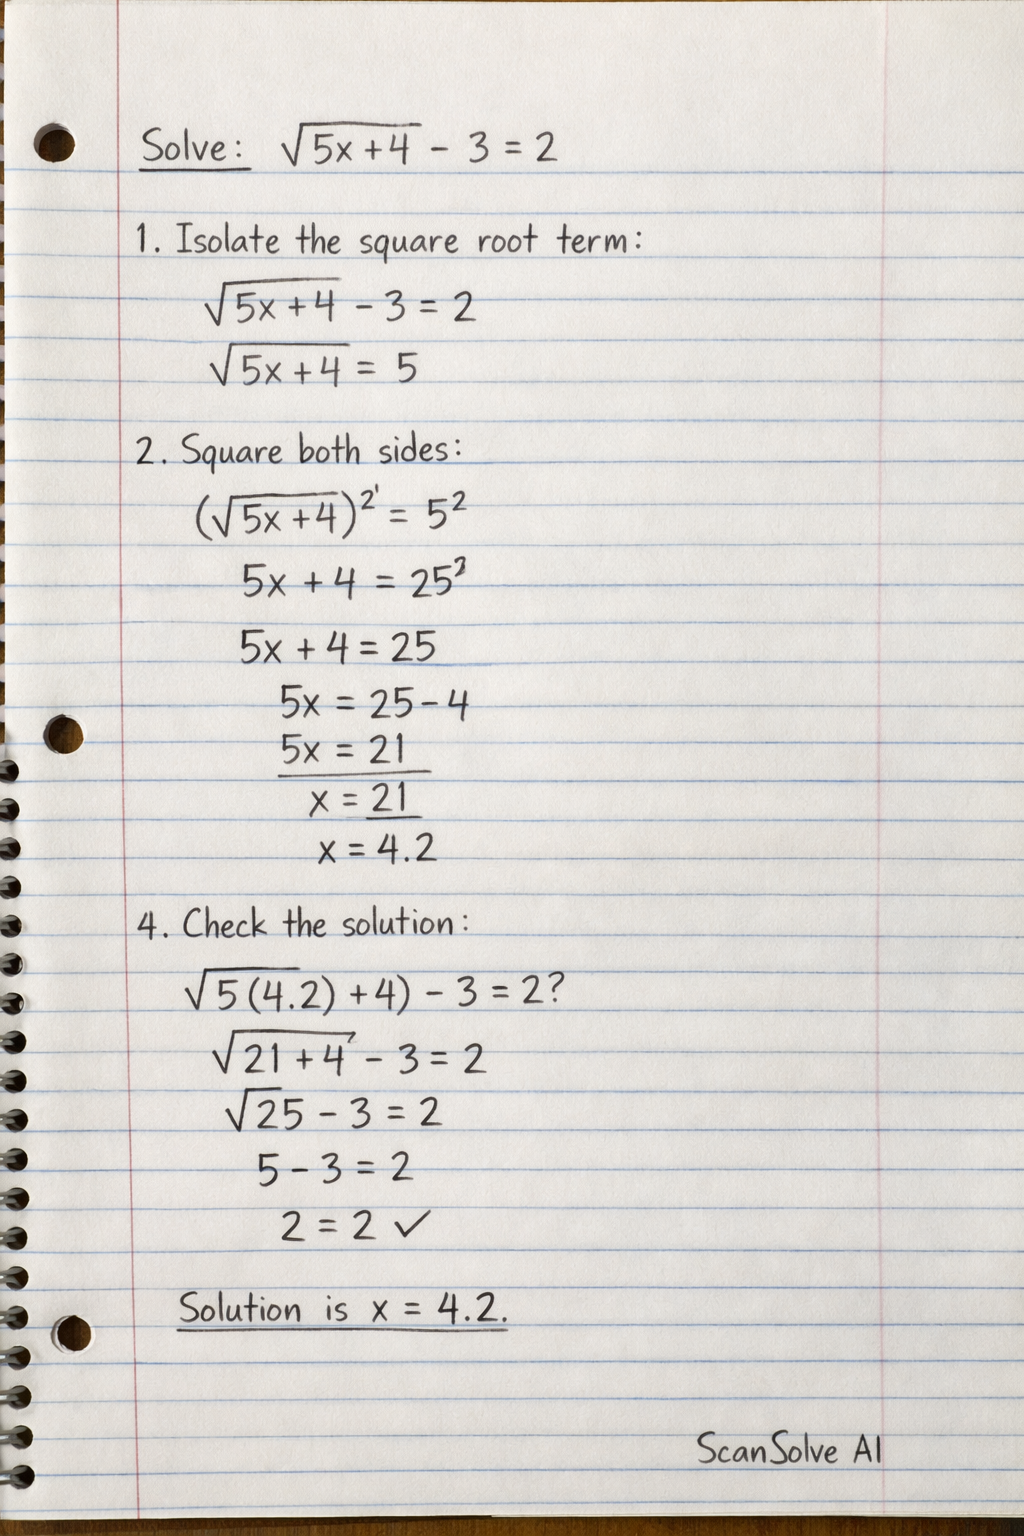 Solve: √5x+4 - 3 = 2
1. Isolate the square root term:
√5x+4 - 3 = 2
√5x+4 = 5
2. Square both sides:
(√5x+4)²' = 5²
5x + 4 = 25²
5x + 4 = 25
5x = 25-4
5x = 21
x = 21
x = 4.2
4. Check the solution:
√5(4.2)+4) - 3 = 2?
√21+4 - 3 = 2
√25 - 3 = 2
5 - 3 = 2
2 = 2 ✓
Solution is x = 4.2.
ScanSolve AI